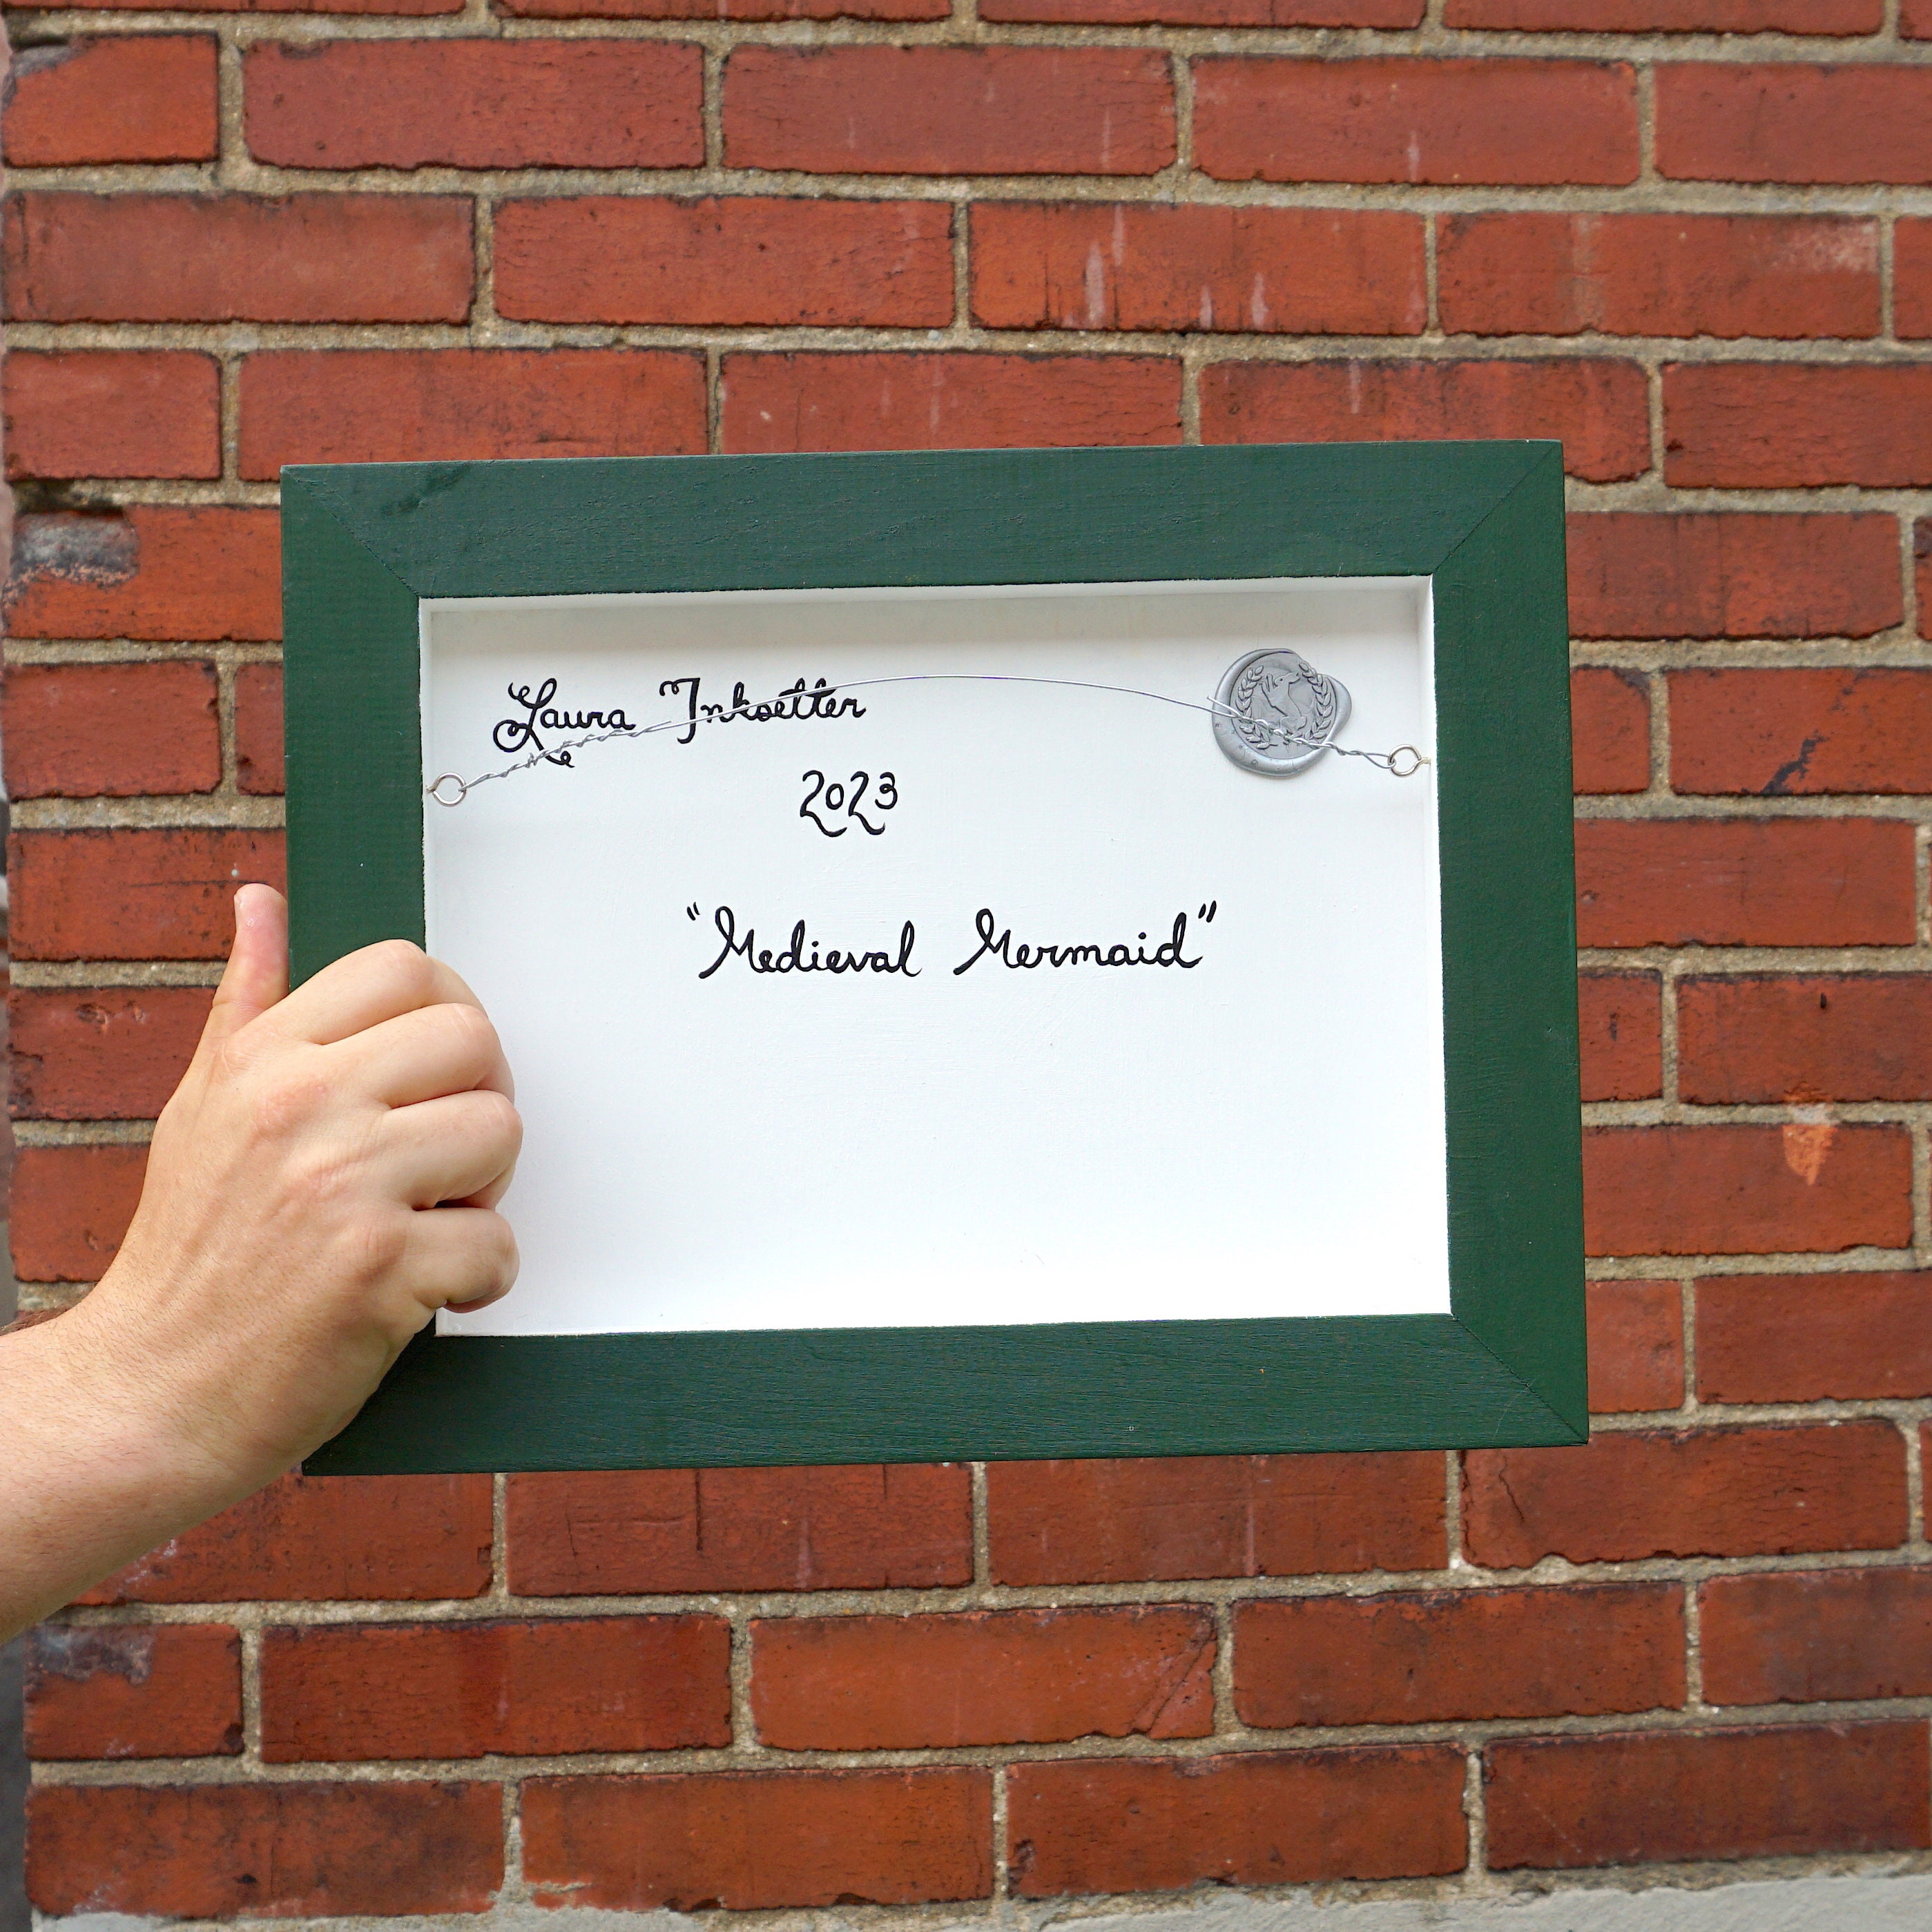 Laura Inksetter
2023
"Medieval Mermaid"